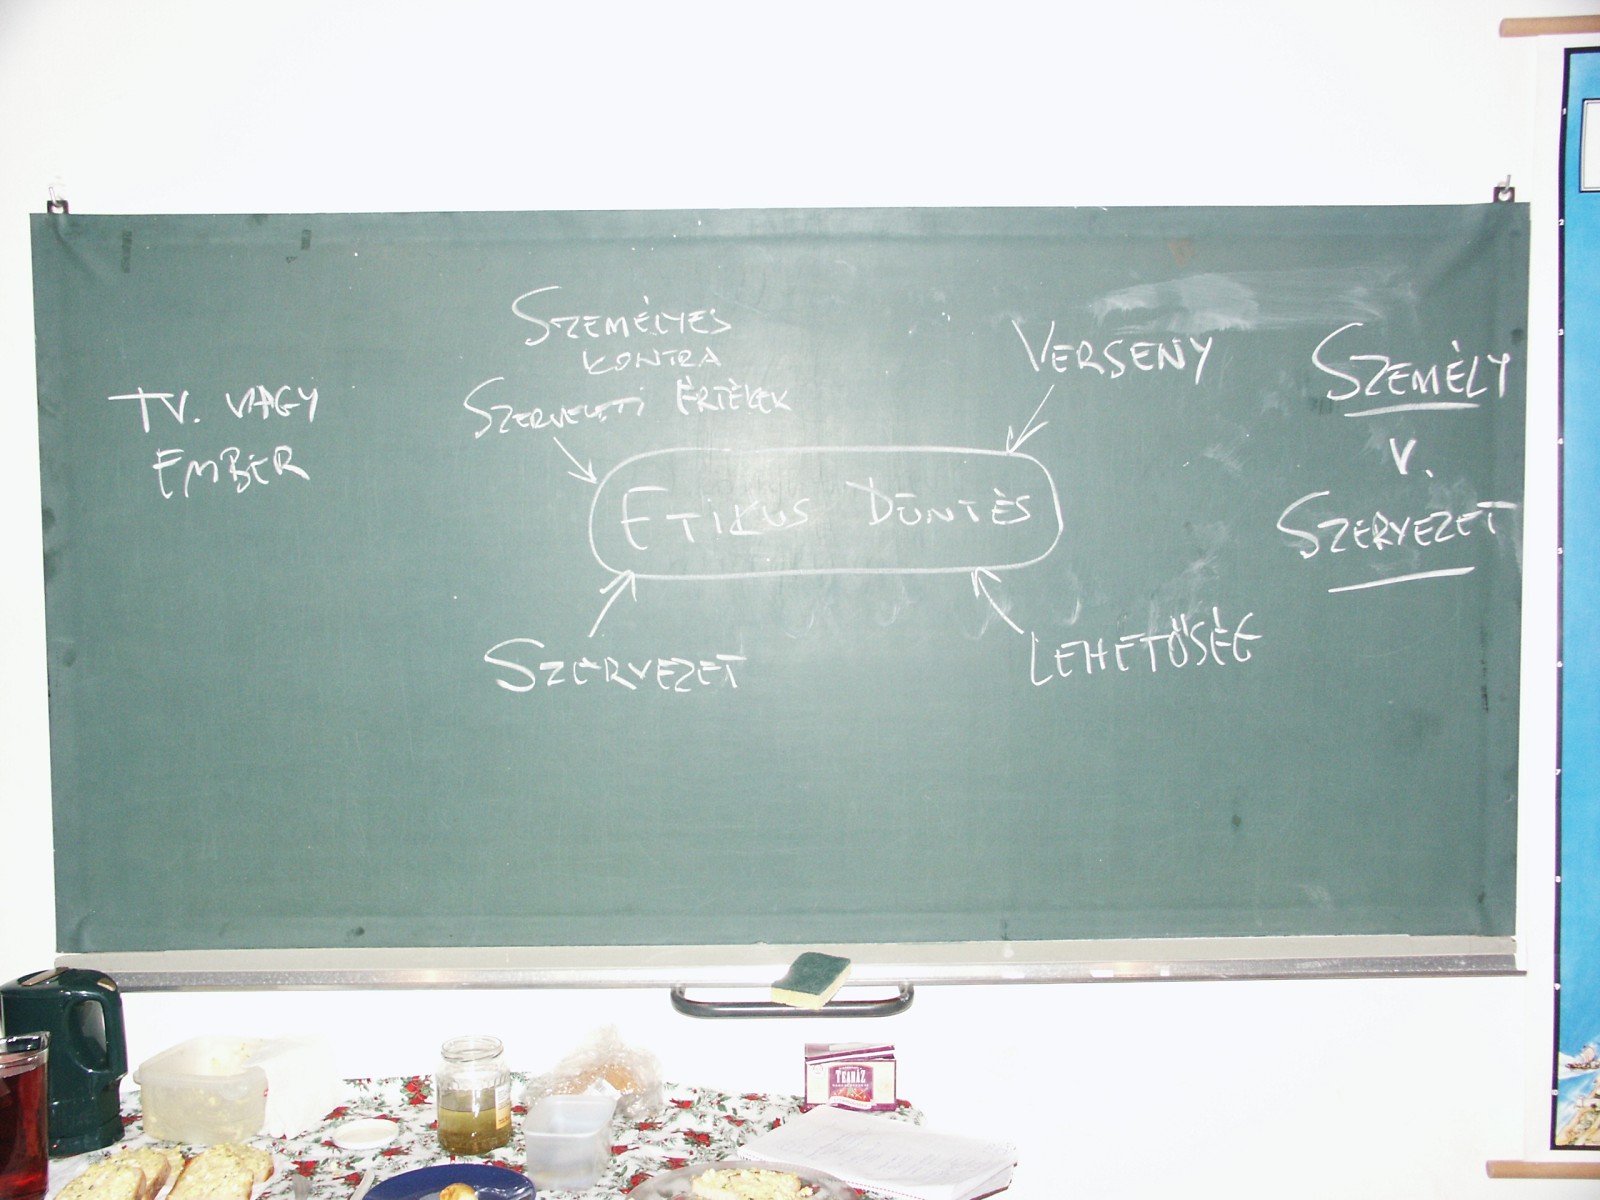 TV. VAGY
EMBER
SZEMÉLYES
KONTRA
SZERVEZETI ÉRTÉKEK
VERSENY
ETIKUS DÖNTÉS
SZERVEZET
LEHETŐSÉG
SZEMÉLY
V.
SZERVEZET
TEAHÁZ